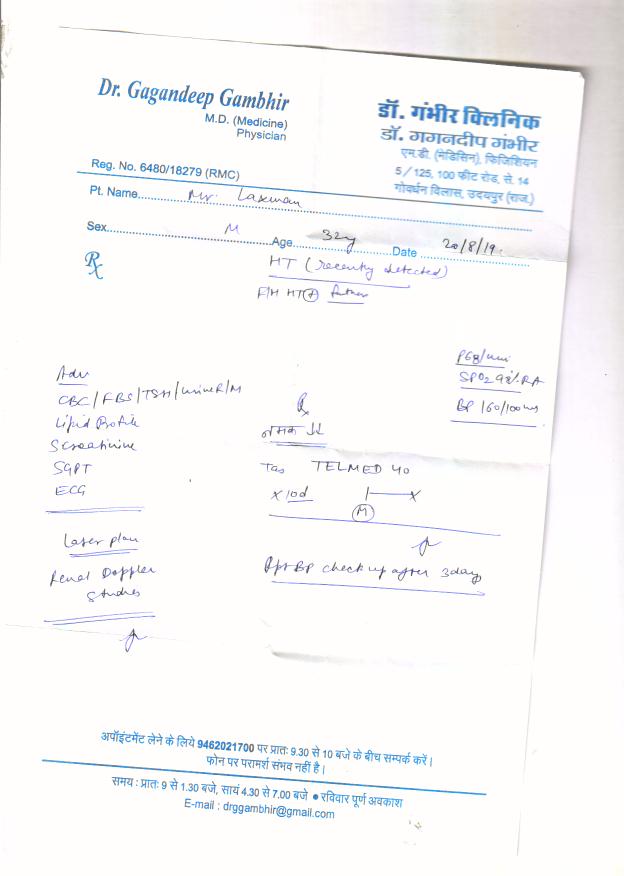 Dr. Gagandeep Gambhir
M.D. (Medicine)
Physician
Reg. No. 6480/18279 (RMC)
डॉ. गंभीर क्लिनिक
डॉ. गगनदीप गंभीर
एम.डी. (मेडिसिन), फिजिशियन
5/125, 100 फीट रोड, से. 14
गोवर्धन विलास, उदयपुर (राज.)
Pt. Name Mr. Laxman
Sex M Age 32y Date 20/8/19
Rx
HT (recently detected)
F/H HT + father
P 68/min
SPO2 98% RA
BP 160/100
Adv
CBC/FBS/TSH/Urine R/M
Lipid Profile
S creatinine
SGPT
ECG
Rx
नमक ↓↓
Tab TELMED 40
x 10d
M
Later plan
Renal Doppler
Studies
Rpt BP check up after 3 days
अपॉइंटमेंट लेने के लिये 9462021700 पर प्रातः 9.30 से 10 बजे के बीच सम्पर्क करें।
फोन पर परामर्श संभव नहीं है।
समय : प्रातः 9 से 1.30 बजे, सायं 4.30 से 7.00 बजे ● रविवार पूर्ण अवकाश
E-mail : drggambhir@gmail.com